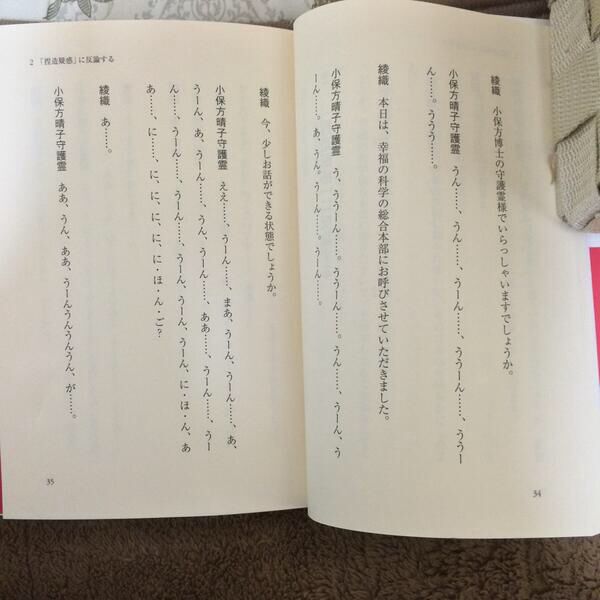 綾織　小保方博士の守護霊様でいらっしゃいますでしょうか。
小保方晴子守護霊　うん……、うん……、ううーん……、ううー
ん……。ううう……。
綾織　本日は、幸福の科学の総合本部にお呼びさせていただきました。
小保方晴子守護霊　う、ううーん……。ううーん……。うん……、うーん、う
ーん……。あ、うん。うーん……。うーん……。
34
2 「捏造疑惑」に反論する
綾織　今、少しお話ができる状態でしょうか。
小保方晴子守護霊　ええ……、うーん……、まあ、うーん、うーん……、あ、
うーん、あ、うーん……、うん、うーん……、ああ……、うーん……、うー
ん……、うーん……、うーん、うーん、うーん、に・ほ・ん、あ
あ……、に……、に、に、に、に・ほ・ん・ご？
綾織　あ……。
小保方晴子守護霊　ああ、うん、ああ、うーんうんうんうん、が……。
35